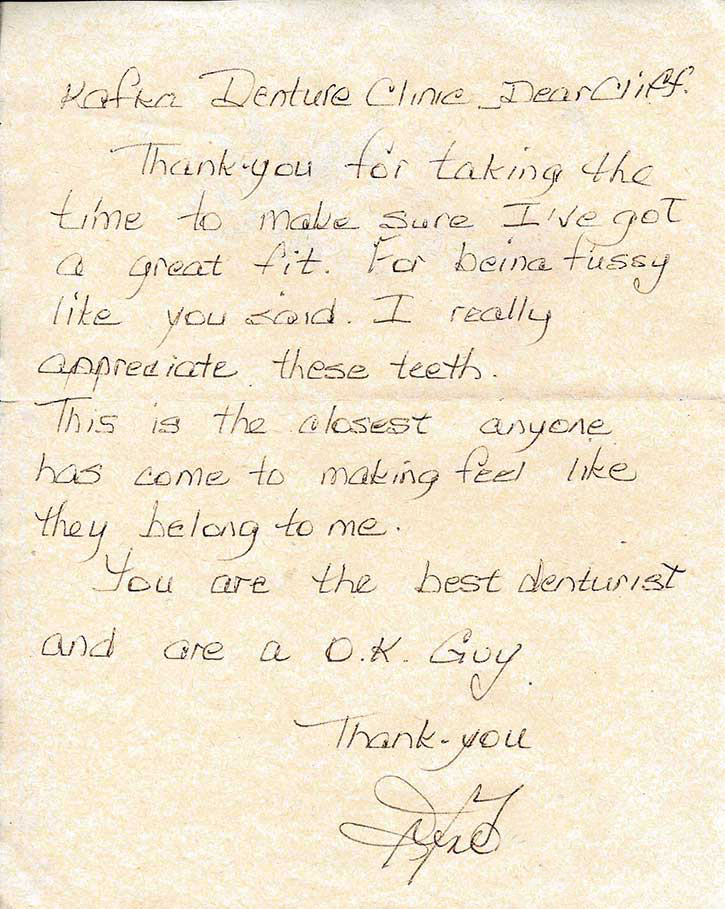 Kafka Denture Clinic Dear Cliff.
Thank-you for taking the
time to make sure I've got
a great fit. For being fussy
like you said. I really
appreciate these teeth.
This is the closest anyone
has come to making feel like
they belong to me.
You are the best denturist
and are a O.K. Guy.
Thank-you